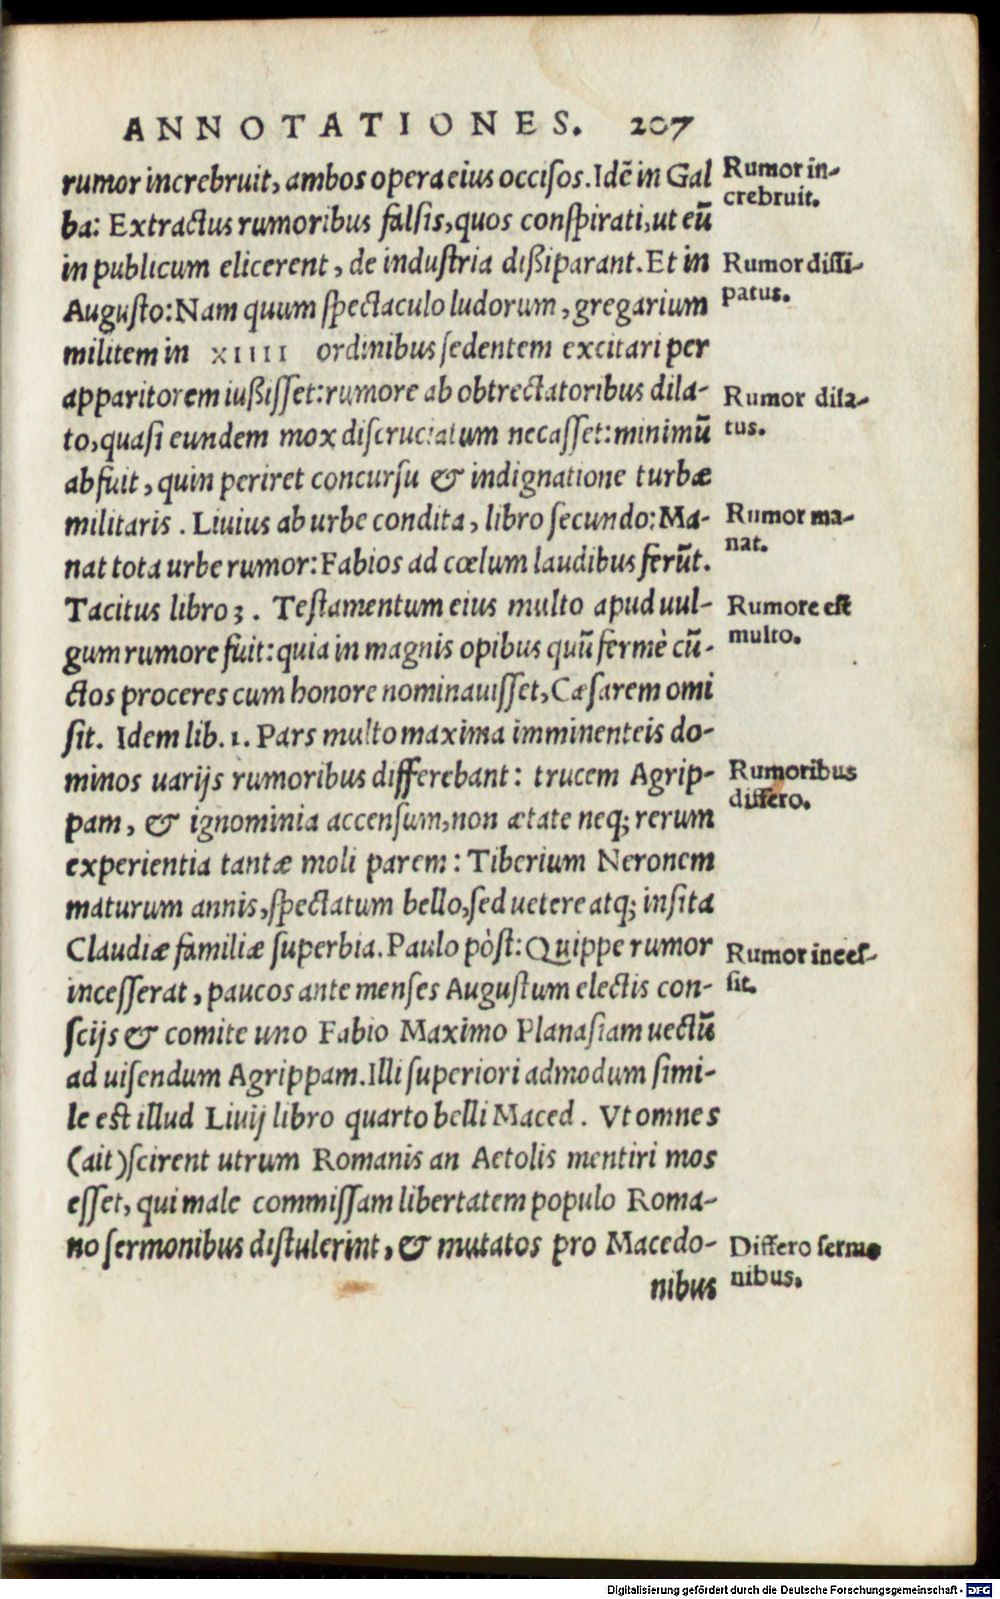 ANNOTATIONES. 207
rumor increbruit, ambos opera eius occiſos. Idē in Gal
ba: Extractus rumoribus falſis, quos conſpirati, ut eū
in publicum elicerent, de induſtria dißiparant. Et in
Auguſto: Nam quum ſpectaculo ludorum, gregarium
militem in XIIII ordinibus ſedentem excitari per
apparitorem iußiſſet: rumore ab obtrectatoribus dila-
to, quaſi eundem mox diſcruciatum necaſſet: minimū
abfuit, quin periret concurſu & indignatione turbæ
militaris. Liuius ab urbe condita, libro ſecundo: Ma-
nat tota urbe rumor: Fabios ad cœlum laudibus ferūt.
Tacitus libro 3. Teſtamentum eius multo apud uul-
gum rumore fuit: quia in magnis opibus quū fermè cū-
ctos proceres cum honore nominauiſſet, Cæſarem omi
ſit. Idem lib. 1. Pars multo maxima imminenteis do-
minos uarijs rumoribus differebant: trucem Agrip-
pam, & ignominia accenſum, non ætate neq; rerum
experientia tantæ moli parem: Tiberium Neronem
maturum annis, ſpectatum bello, ſed uetere atq; inſita
Claudiæ familiæ ſuperbia. Paulo pòſt: Quippe rumor
inceſſerat, paucos ante menſes Auguſtum electis con-
ſcijs & comite uno Fabio Maximo Planaſiam uectū
ad uiſendum Agrippam. Illi ſuperiori admodum ſimi-
le eſt illud Liuij libro quarto belli Maced. Vt omnes
(ait) ſcirent utrum Romanis an Aetolis mentiri mos
eſſet, qui male commiſſam libertatem populo Roma-
no ſermonibus diſtulerint, & mutatos pro Macedo-
nibus
Rumor in-
crebruit.
Rumor diſſi-
patus.
Rumor dila-
tus.
Rumor ma-
nat.
Rumore eſt
multo.
Rumoribus
differo.
Rumor inceſ-
ſit.
Differo ſermo
nibus.
Digitalisierung gefördert durch die Deutsche Forschungsgemeinschaft - DFG